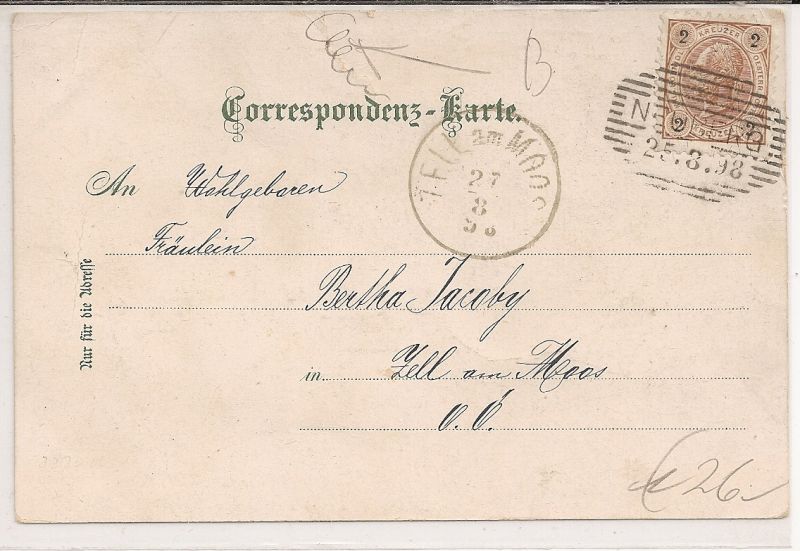 B
Correspondenz-Karte.
2 KREUZER 2
2 KREUZER 2
25.8.98
ZELL am MOOS
27
8
98
An Wohlgeboren
Fräulein
Bertha Jacoby
in Zell am Moos
O. Ö.
Nur für die Adresse
26